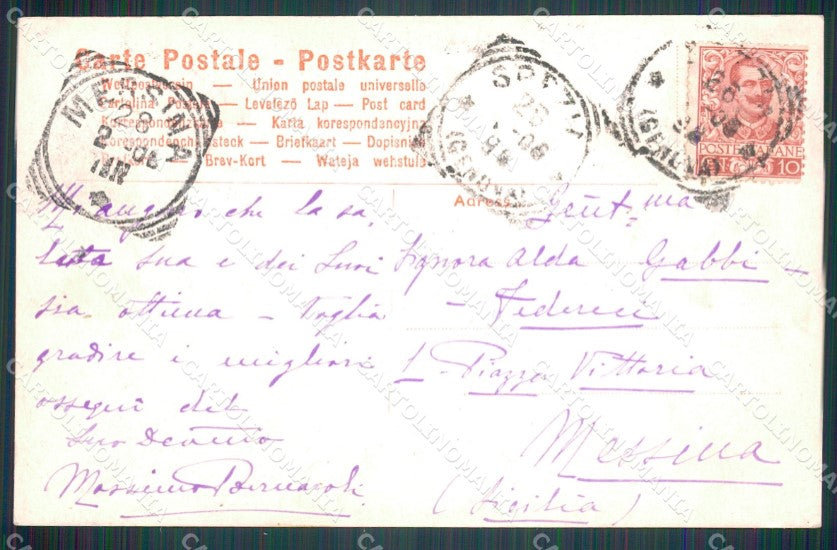 Carte Postale - Postkarte
Weltpostverein — Union postale universelle
Cartolina Postale — Levelező Lap — Post card
Korrespondenzkarte — Karta korespondancyjna
Correspondenzkort — Briefkaart — Dopisnice
Brev-Kort — Wateja wehstule
MESSINA
SPEZIA
(GENOVA)
(GENOVA)
POSTE ITALIANE
10
M'auguro che la sa
lute sua e dei Suoi
sia ottima - Voglia
gradire i migliori
ossequi del
Suo Devotmo
Massimo
Adres
Gentma
Signora Alda Gabbi -
- Federici
1 - Piazza Vittoria
Messina
(Sicilia)
CARTOLINOMANIA